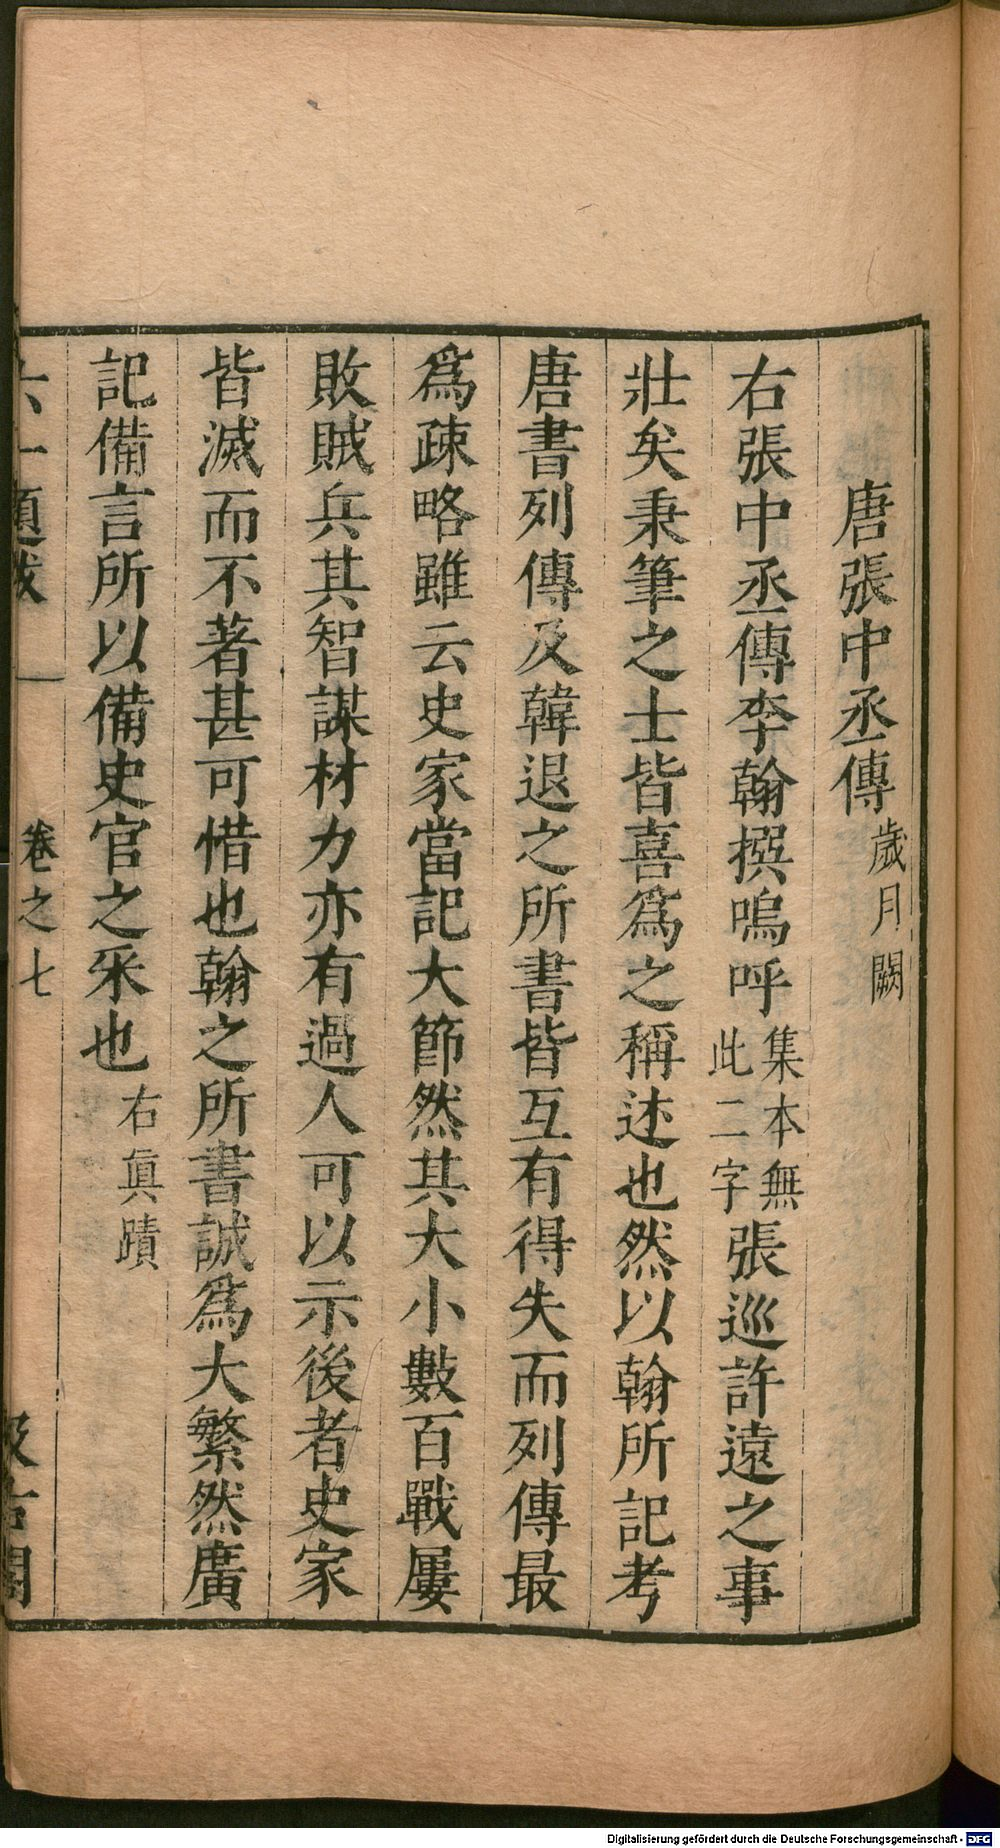 唐張中丞傳歲月闕
右張中丞傳李翰撰嗚呼集本無此二字張巡許遠之事
壯矣秉筆之士皆喜爲之稱述也然以翰所記考
唐書列傳及韓退之所書皆互有得失而列傳最
爲疎略雖云史家當記大節然其大小數百戰屢
敗賊兵其智謀材力亦有過人可以示後者史家
皆滅而不著甚可惜也翰之所書誠爲大繁然廣
記備言所以備史官之采也右眞蹟
六一題跋 卷之七 汲古閣
Digitalisierung gefördert durch die Deutsche Forschungsgemeinschaft - DFG